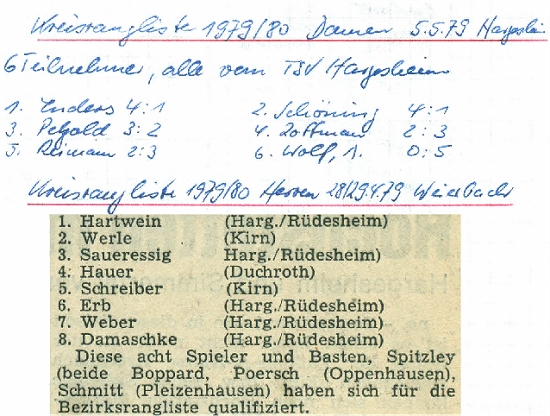 Kreisrangliste 1979/80 Damen 5.5.79 Hargeshei
6 Teilnehmer, alle vom TSV Hargesheim
1. Enders 4:1 2. Schöning 4:1
3. Petzold 3:2 4. Zoffmann 2:3
5. Reimann 2:3 6. Wolf, 1. 0:5
Kreisrangliste 1979/80 Herren 28/29.4.79 Weierbach
1. Hartwein (Harg./Rüdesheim)
2. Werle (Kirn)
3. Saueressig Harg./Rüdesheim)
4. Hauer (Duchroth)
5. Schreiber (Kirn)
6. Erb (Harg./Rüdesheim)
7. Weber (Harg./Rüdesheim)
8. Damaschke (Harg./Rüdesheim)
Diese acht Spieler und Basten, Spitzley
(beide Boppard, Poersch (Oppenhausen),
Schmitt (Pleizenhausen) haben sich für die
Bezirksrangliste qualifiziert.